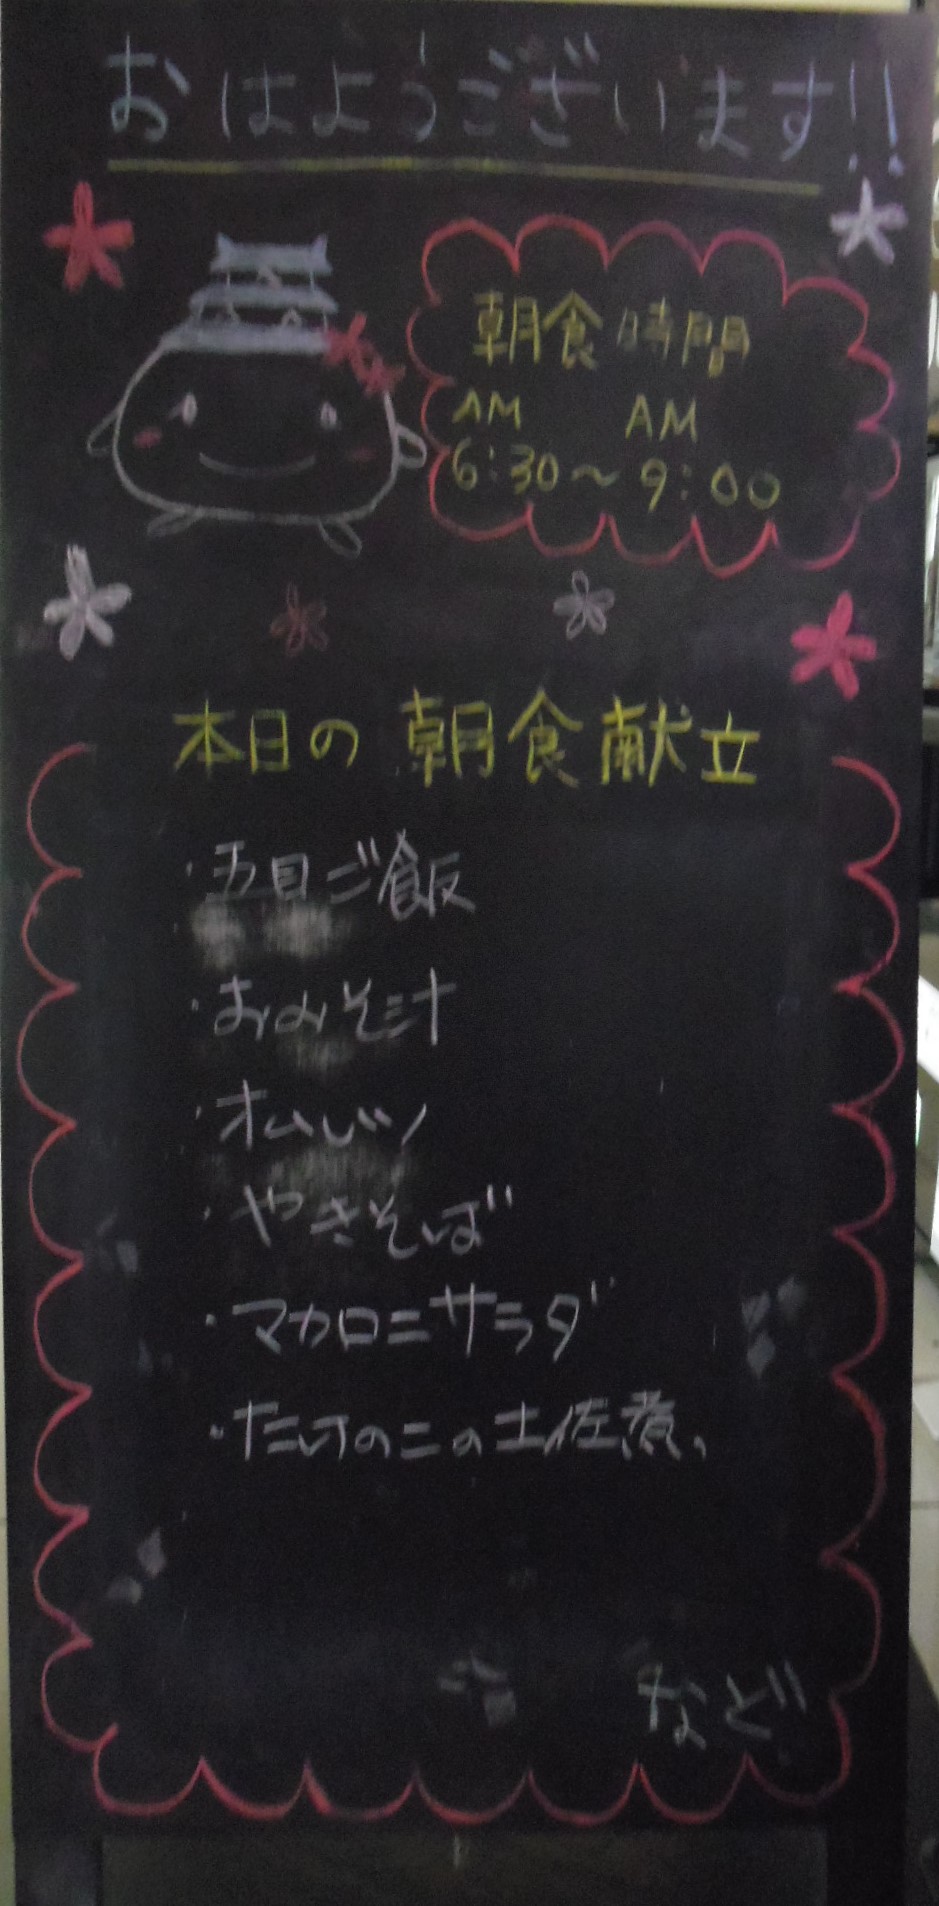 おはようございます!!
朝食時間
AM AM
6:30～9:00
本日の朝食献立
・五目ご飯
・おみそ汁
・オムレツ
・やきそば
・マカロニサラダ
・たけのこの土佐煮、
など